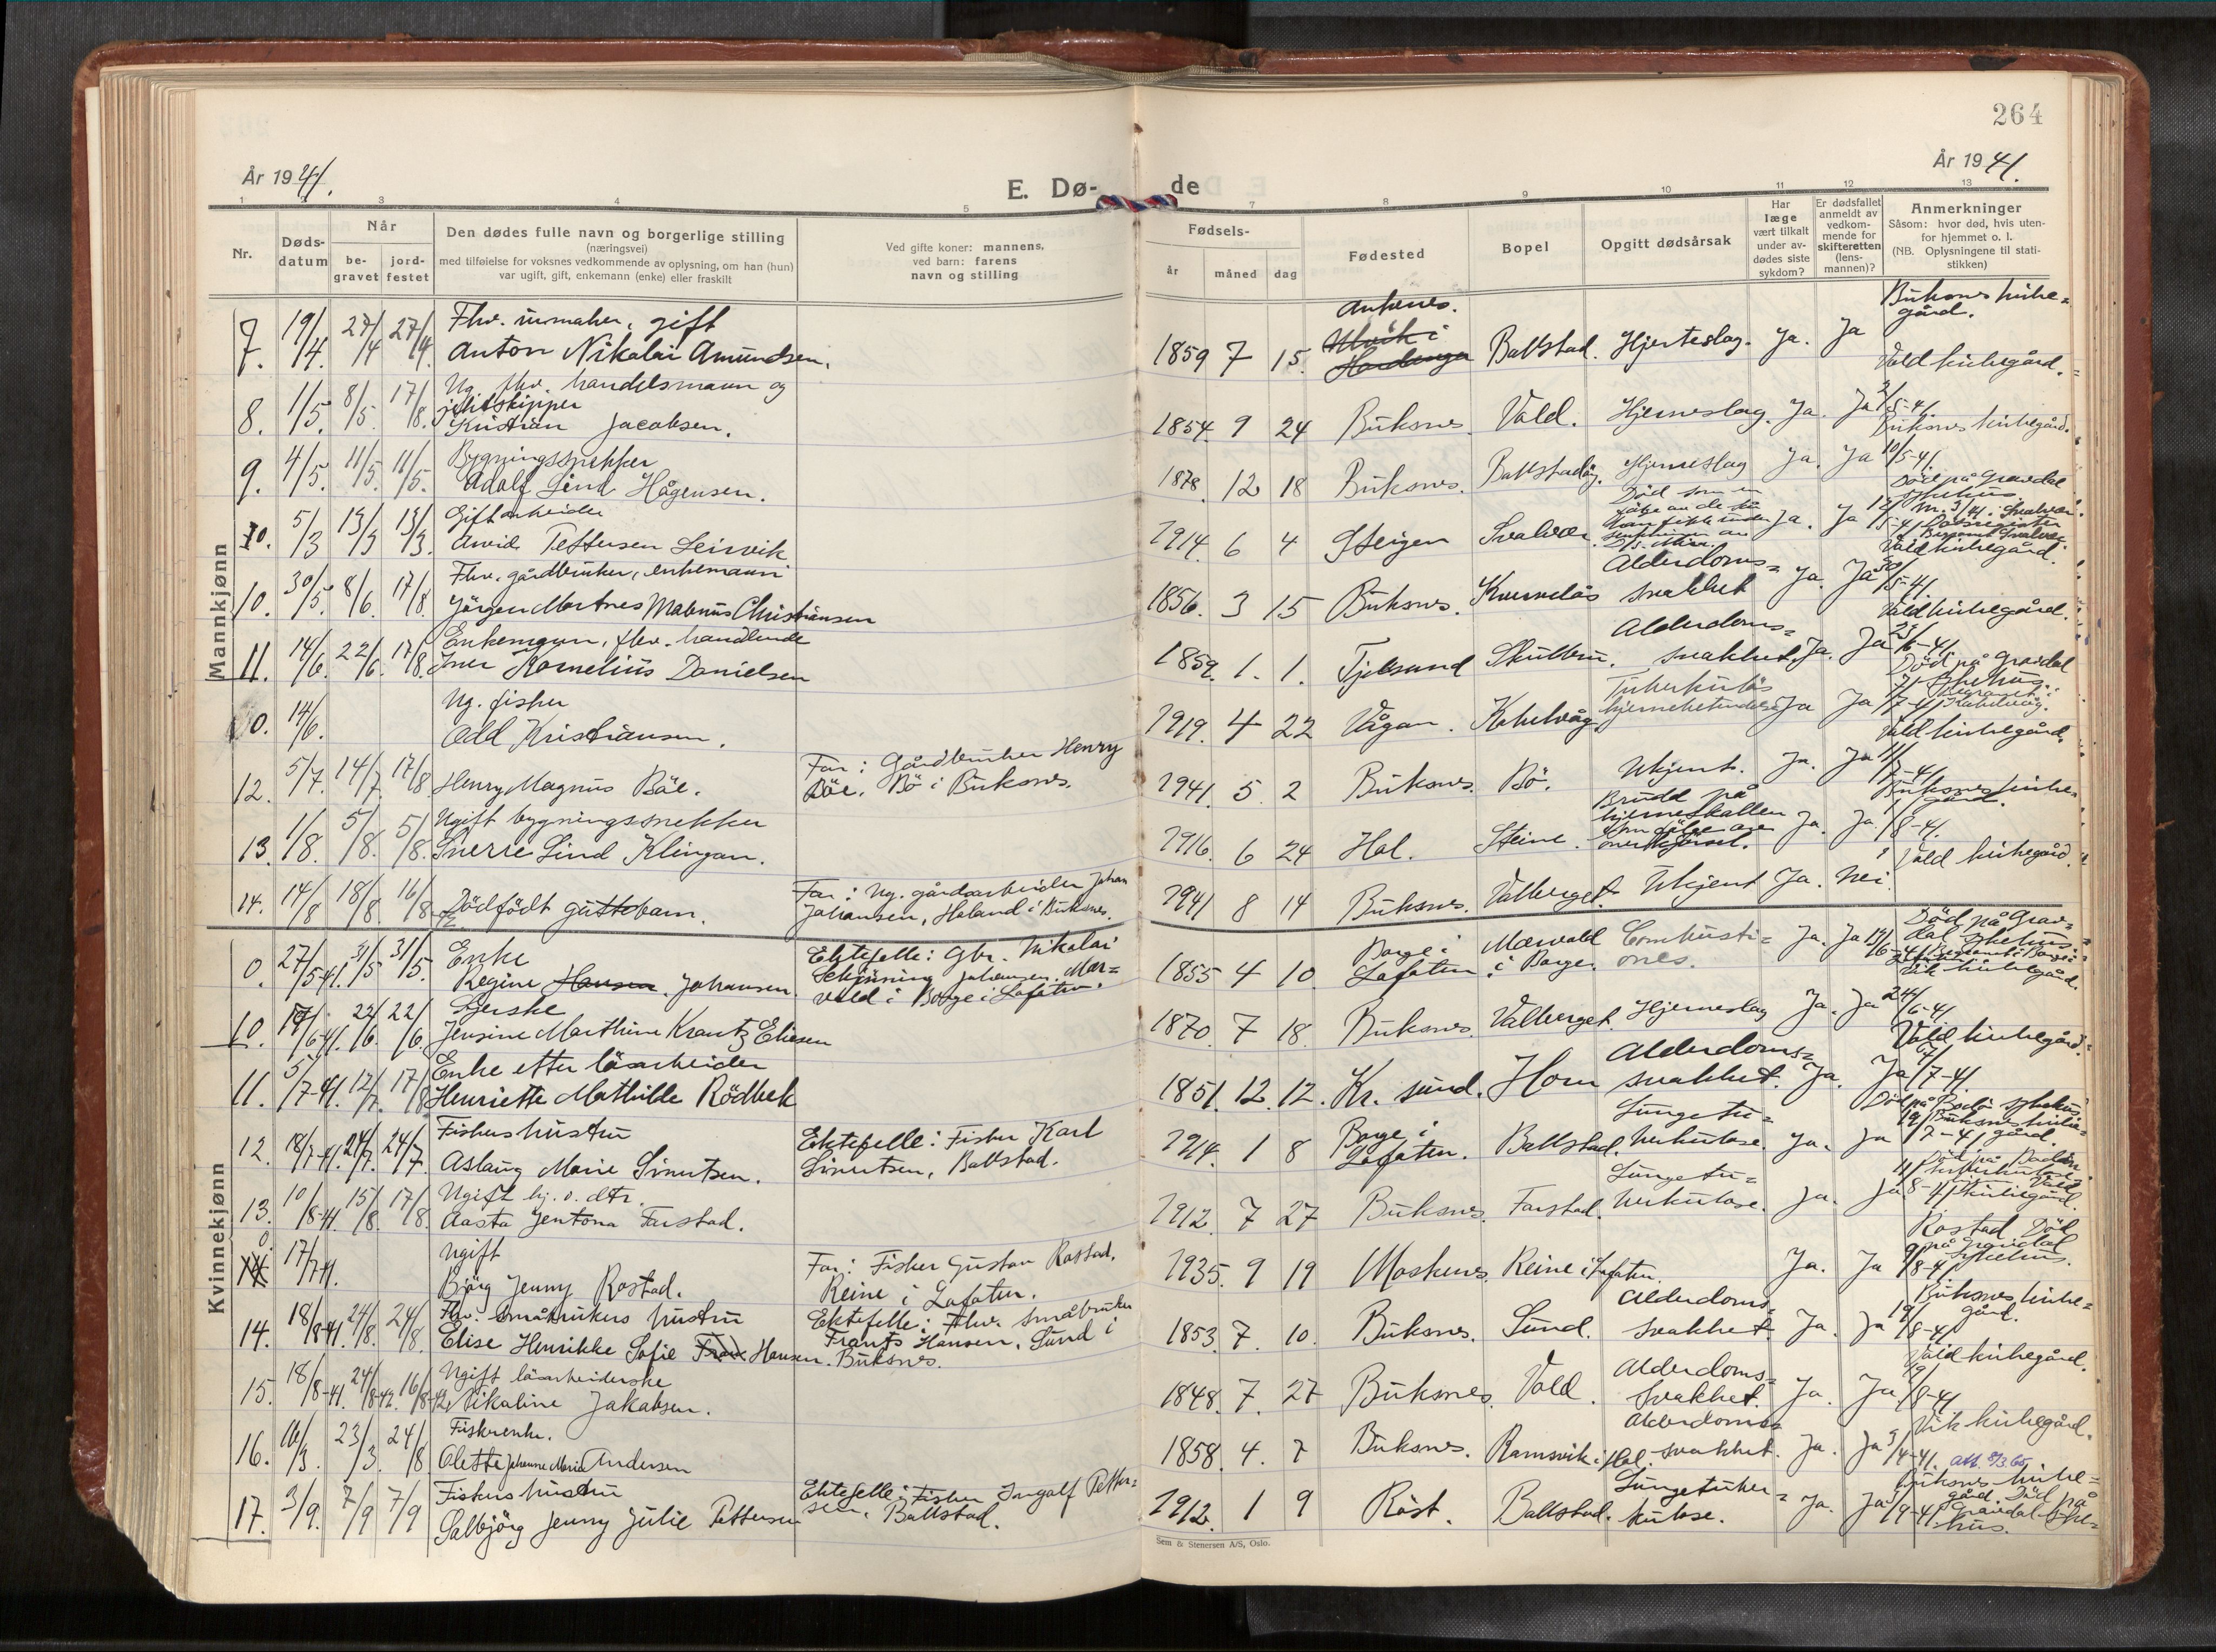 264
År 1941.
År 1941.
E. Dø-
de
1
3
4
5
7
8
9
10
11
12
13
Nr.
Døds-
datum
Når
be-
gravet
jord-
festet
Den dødes fulle navn og borgerlige stilling
(næringsvei)
med tilføielse for voksnes vedkommende av oplysning, om han (hun)
var ugift, gift, enkemann (enke) eller fraskilt
Ved gifte koner: mannens,
ved barn: farens
navn og stilling
Fødsels-
år
måned
dag
Fødested
Bopel
Opgitt dødsårsak
Har
læge
vært tilkalt
under av-
dødes siste
sykdom?
Er dødsfallet
anmeldt av
vedkom-
mende for
skifteretten
(lens-
mannen)?
Anmerkninger
Såsom: hvor død, hvis uten-
for hjemmet o. l.
(NB. Oplysningene til stati-
stikken)
Mannkjønn
7. 19/4 27/4 27/4 Fhv. urmaker, gift
Anton Nikolai Amundsen.
1859 7 15. Ankenes. Ballstad. Hjerteslag. Ja. Ja
Buksnes kirke=
gård.
8. 1/5. 8/5. 17/8. Ug. fhv. handelsmann og
jektskipper
Kristian Jacobsen.
1854 9 24 Buksnes. Vold. Hjerneslag. Ja. Ja
Vold kirkegård.
9. 4/5. 11/5. 11/5. Bygningssnekker
Adolf Lind Hågensen.
1878. 12 18 Buksnes. Hjerneslag Ja. Ja 10/5-41.
Buksnes kirkegård.
0. 5/3 13/3 13/3. Gift arbeider
Arvid Pettersen Leirvik
1914. 6 4 Steigen Svolvær. Ja. Ja
Død på Gravdal
sykehus
10. 30/5. 8/6. 17/8. Fhv. gårdbruker, enkemann
Jörgen Martnes Magnus Christiansen
1856. 3 15 Buksnes. Alderdoms=
svakhet Ja. Ja
Vold kirkegård.
11. 14/6. 22/6. 17/8. Enkemann, fhv. handlende
Iver Kornelius Danielsen
1859. 1. 1. Tjeldsund Alderdoms=
svakhet. Ja. Ja
Vold kirkegård.
0. 14/6. Ug. fisker
Odd Kristiansen.
1919. 4 22 Vågan. Kabelvåg Tuberkuløs
hjernebetendelse Ja Ja
Død på Gravdal
sykehus.
12. 5/7. 14/7. 17/8 Henry Magnus Böe.
Far: Gårdbruker Henry
Böe. Bö i Buksnes.
1941. 5. 2 Buksnes. Bö. Ukjent. Ja. Ja 11/7-41
Vold kirkegård.
13. 1/8. 5/8. 5/8. Ugift bygningssnekker
Sverre Lind Klingan.
1916. 6 24 Hol. Steine. Brudd på
hjerneskallen
som følge av
overkjørsel. Ja. Ja. 1/8-41.
Buksnes kirke=
gård.
14. 14/8 18/8. 16/8 Dödfödt guttebarn.
Far: Ug. gårdsarbeider Johan
Johansen, Holand i Buksnes.
1941 8 14 Buksnes. Valberget. Ukjent Ja. Nei.
Vold kirkegård.
Kvinnekjønn
0. 27/5-41. 31/5 31/5. Enke
Regine Hansen Johansen.
Ektefelle: Gbr. Nikolai
Johansen. Mær=
vold i Borge i Lofoten.
1855 4 10 Borge i
Lofoten. Mærvold
i Borge. Combusti=
ones. Ja. Ja
Død på Grav=
dal sykehus.
10. 22/6. 22/6. Sykerske
Jensine Marthine Krantz Eliesen
1870. 7 18. Buksnes. Valberget. Hjerneslag Ja. Ja 24/6-41
Vik kirkegård.
11. 5/7-41. 12/7. 17/8 Enke etter lösarbeider
Henriette Mathilde Rödbek
1851. 12. 12. Kr. sund. Horn Alderdoms=
svakhet. Ja. Ja 7/7-41.
Vold kirkegård.
12. 18/7-41. 24/7. 24/7 Fiskers hustru
Aslaug Marie Sivertsen.
Ektefelle: Fisker Karl
Sivertsen, Ballstad.
1914. 1 8 Borge i
Lofoten. Ballstad. Lungetu=
berkulose. Ja. Ja
Död på Bodö sykehus
Buksnes kirke=
gård.
13. 10/8-41. 15/8. 17/8. Ugift hj. v. dtr.
Aasta Jentona Farstad.
1912. 7 27 Buksnes. Farstad. Lungetu=
berkulose. Ja. Ja 11/8-41
Vold
kirkegård.
0 17/7-41. Ugift
Björg Jenny Rostad.
Far: Fisker Gustav Rostad.
Reine i Lofoten.
1935. 9 19 Moskenes. Reine i Lofoten. Ja. Ja
Rostad Död
på Gravdal
sykehus.
14. 18/8-41. 24/8. 24/8. Fhv. småbrukers hustru
Elise Henrikke Sofie Hansen.
Ektefelle: Fhv. småbruker
Frants Hansen, Sund i
Buksnes.
1853. 7. 10. Buksnes. Sund. Alderdoms=
svakhet. Ja. Ja 19/8-41
Buksnes kirke=
gård.
15. 18/8-41. 24/8-42. 16/8-42 Ugift lösarbeiderske
Nikoline Jakobsen.
1848. 7. 27 Buksnes. Vold. Alderdoms=
svakhet. Ja. Ja
Vold kirkegård.
16. 16/3. 23/3. 24/8 Fiskerenke.
Olette Johanne Marie Andersen
1858. 4. 7 Buksnes. Ramsvik i Hol. Alderdoms
svakhet. Ja. Ja
Vik kirkegård.
17. 3/9. 7/9 7/9 Fiskers hustru
Salbjörg Jenny Julie Pettersen
Ektefelle: Fisker Ingolf Petter=
sen, Ballstad.
1912. 1 9 Röst. Ballstad. Lungetuber=
kulose. Ja. Ja
Buksnes kirke=
gård. Död på
Gravdal syke=
hus.
Sem & Stenersen A/S, Oslo.